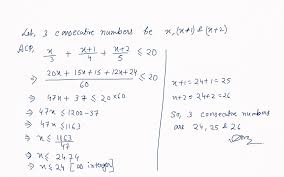 Let, 3 consecutive numbers be x, (x+1) & (x+2)
ACP, x/3 + x+1/4 + x+2/5 ≤ 20
⇒ 20x + 15x + 15 + 12x + 24 / 60 ≤ 20
⇒ 47x + 37 ≤ 20x60
⇒ 47x ≤ 1200-37
⇒ 47x ≤ 1163
⇒ x ≤ 1163/47
⇒ x ≤ 24.74
⇒ x ≤ 24 [as integer]
x+1 = 24+1 = 25
x+2 = 24+2 = 26
So, 3 consecutive numbers
are 24, 25 & 26